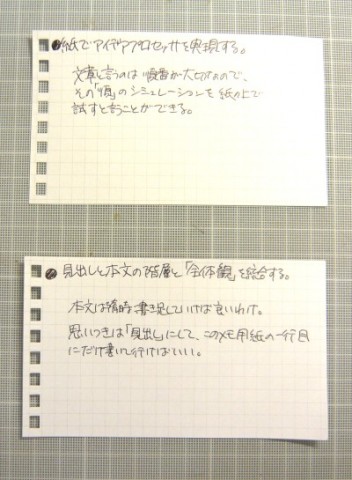 ●紙でアイデアプロセッサを実現する。
文章と言うのは順番が大切なので、
その「順」のシミュレーションを紙の上で
試すと言うことができる。
●見出しと本文の階層と「全体観」を統合する。
本文は随時書き足していけば良いわけ。
思いつきは「見出し」にして、このメモ用紙の一行目
にだけ書いて行けばいい。